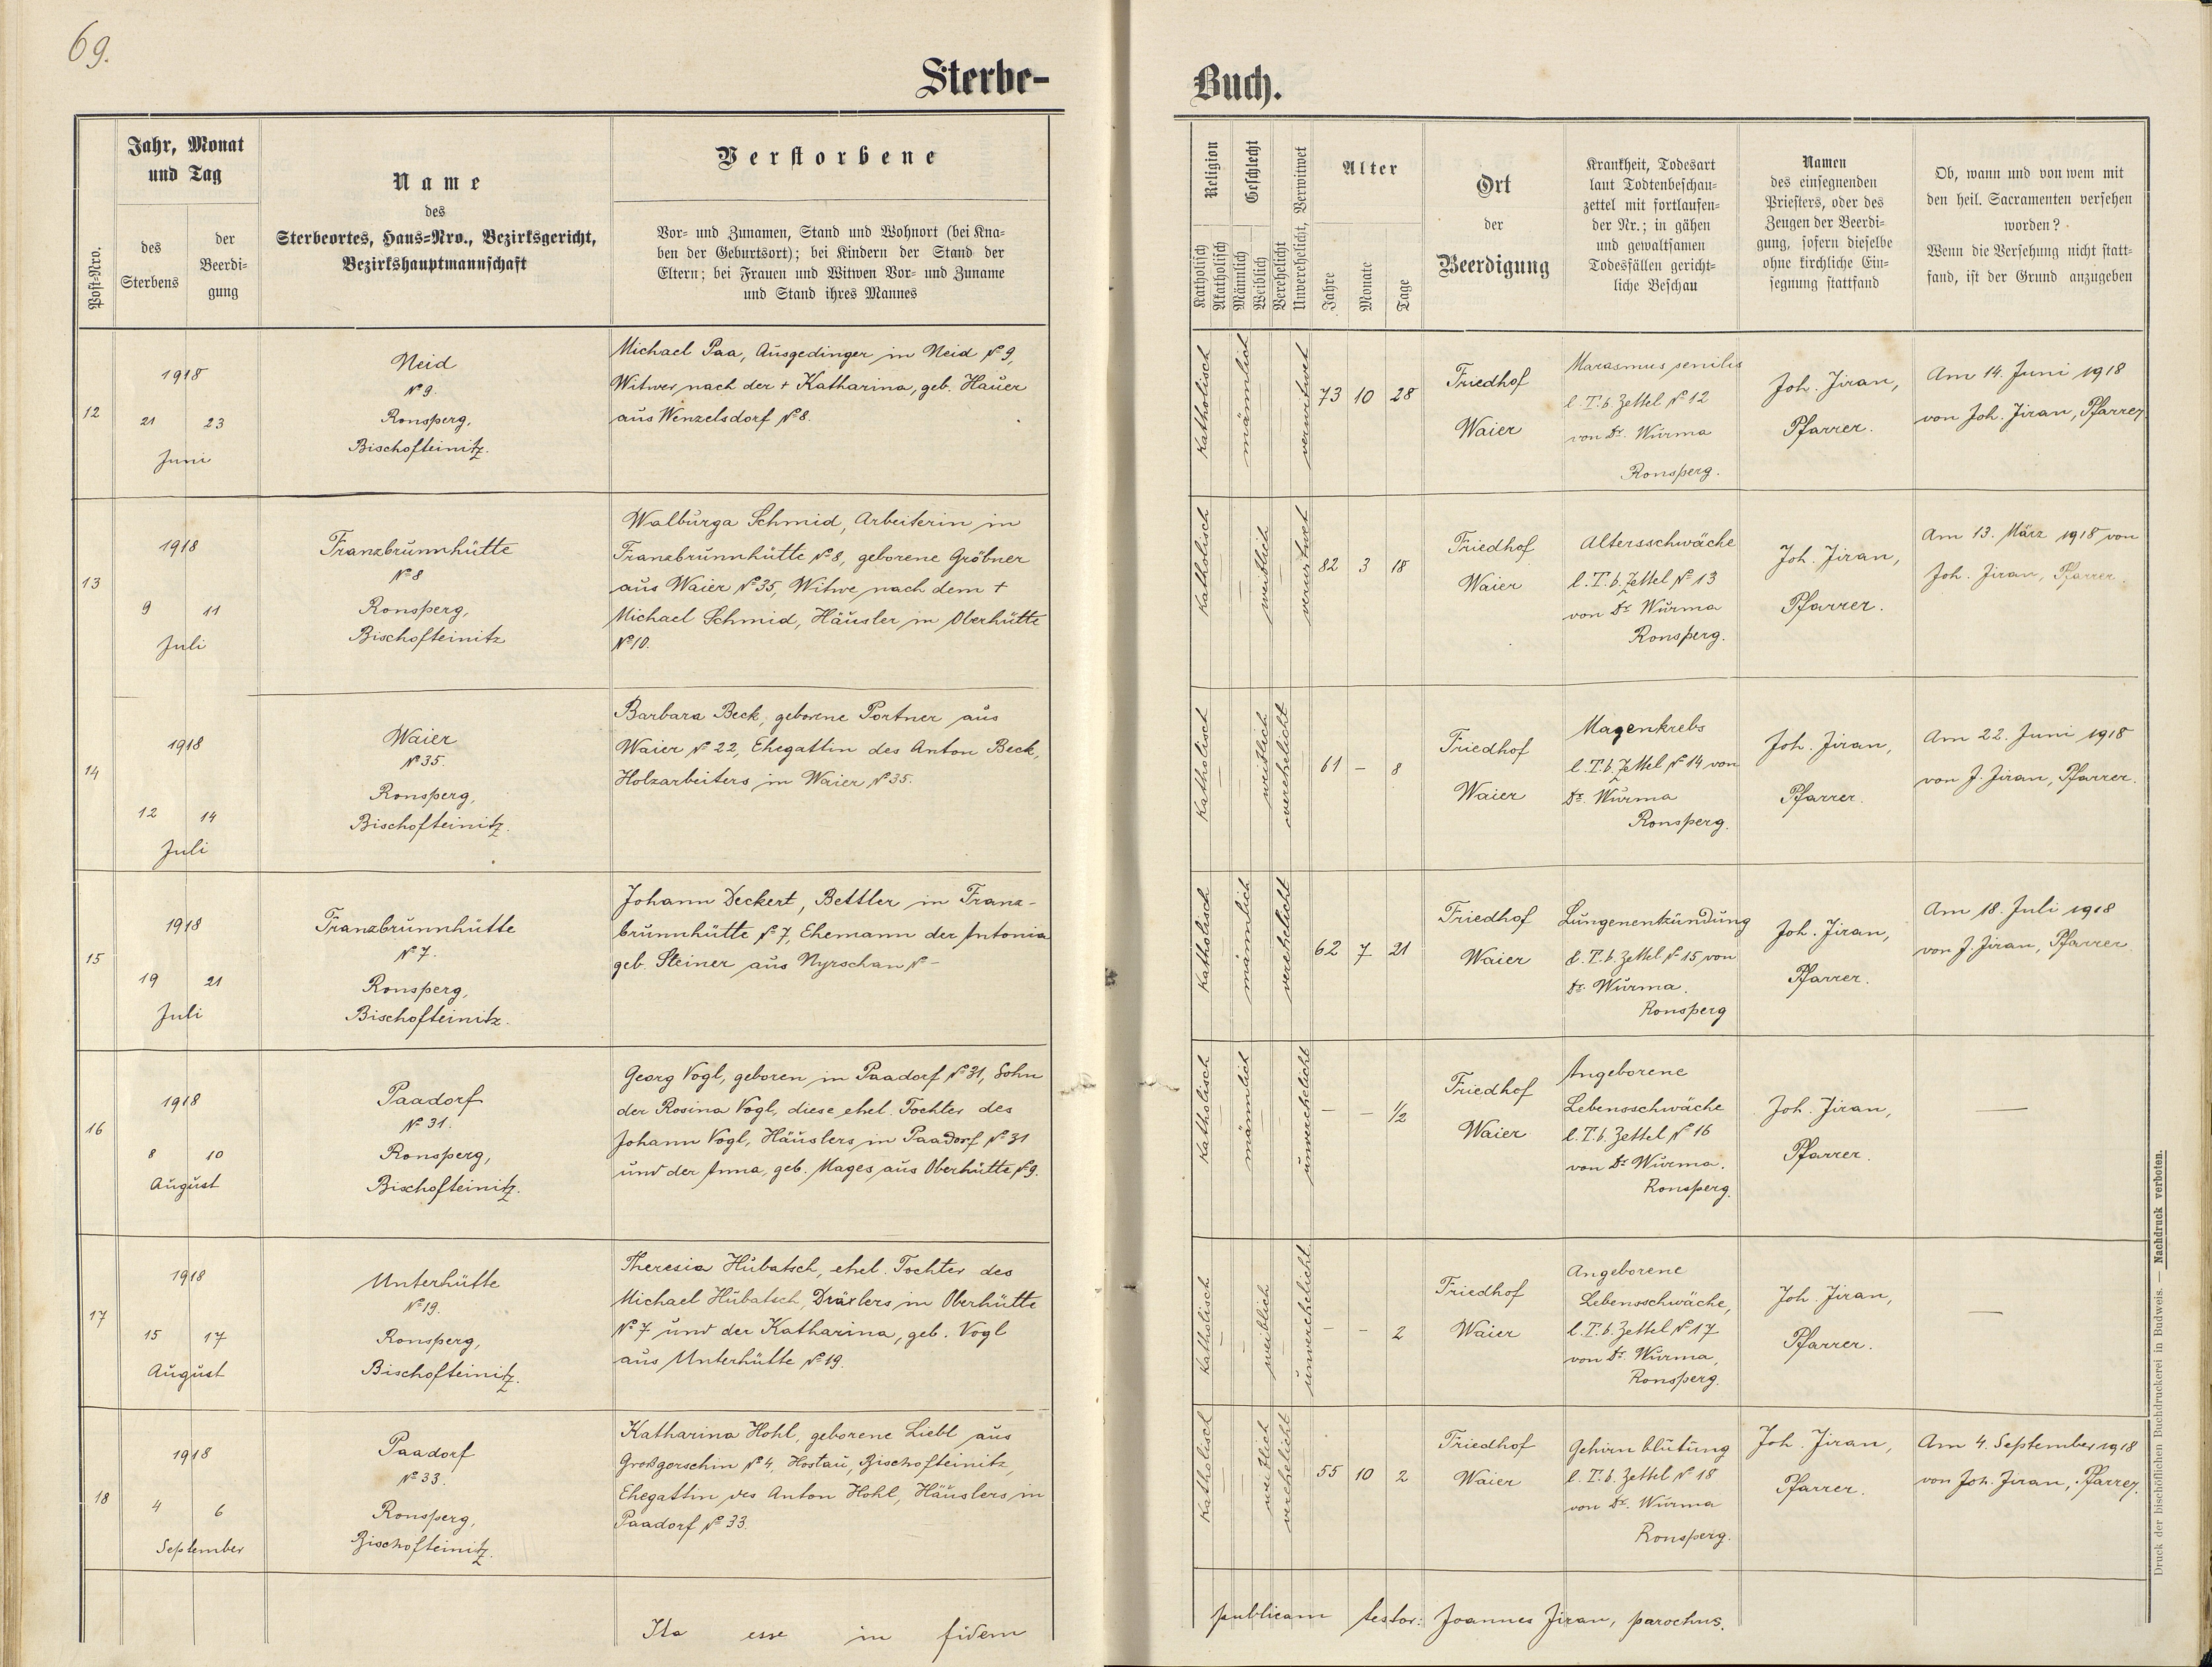 69.
Sterbe-
Buch.
Post-Nro.
Jahr, Monat
und Tag
des
Sterbens
der
Beerdi-
gung
Name
des
Sterbeortes, Haus=Nro., Bezirksgericht,
Bezirkshauptmannschaft
Verstorbene
Vor- und Zunamen, Stand und Wohnort (bei Kna-
ben der Geburtsort); bei Kindern der Stand der
Eltern; bei Frauen und Witwen Vor- und Zuname
und Stand ihres Mannes
Religion
Katholisch
Akatholisch
Geschlecht
Männlich
Weiblich
Verehelicht
Unverehelicht, Verwitwet
Alter
Jahre
Monate
Tage
Ort
der
Beerdigung
Krankheit, Todesart
laut Todtenbeschau=
zettel mit fortlaufen=
der Nr.; in gähen
und gewaltsamen
Todesfällen gericht=
liche Beschau
Namen
des einsegnenden
Priesters, oder des
Zeugen der Beerdi=
gung, sofern dieselbe
ohne kirchliche Ein=
segnung stattfand
Ob, wann und von wem mit
den heil. Sacramenten versehen
worden?
Wenn die Versehung nicht statt=
fand, ist der Grund anzugeben
12
1918
21 23
Juni
Neid
No 9.
Ronsperg,
Bischofteinitz.
Michael Paa, Ausgedinger in Neid No 9,
Witwer nach der + Katharina, geb. Hauer
aus Wenzelsdorf No 8.
katholisch
männlich
verwitwet
73 10 28
Friedhof
Waier
Marasmus senilis
l. T. b. Zettel No 12
von Dr. Wurma
Ronsperg.
Joh. Jiran,
Pfarrer.
Am 14. Juni 1918
von Joh. Jiran, Pfarrer
13
1918
9 11
Juli
Franzbrunnhütte
No 8
Ronsperg,
Bischofteinitz
Walburga Schmid, Arbeiterin in
Franzbrunnhütte No 8, geborene Gröbner
aus Waier No 35, Witwe nach dem +
Michael Schmid, Häusler in Oberhütte
No 10.
katholisch
weiblich
verwitwet
82 3 18
Friedhof
Waier
Altersschwäche
l. T. b. Zettel No 13
von Dr. Wurma
Ronsperg.
Joh. Jiran,
Pfarrer.
Am 13. März 1918 von
Joh. Jiran, Pfarrer.
14
1918
12 14
Juli
Waier
No 35.
Ronsperg,
Bischofteinitz.
Barbara Beck, geborene Portner aus
Waier No 22, Ehegattin des Anton Beck,
Holzarbeiters in Waier No 35.
katholisch
weiblich
verehelicht
61 – 8
Friedhof
Waier
Magenkrebs
l. T. b. Zettel No 14 von
Dr. Wurma
Ronsperg.
Joh. Jiran,
Pfarrer.
Am 22. Juni 1918
von J. Jiran, Pfarrer.
15
1918
19 21
Juli
Franzbrunnhütte
No 7.
Ronsperg,
Bischofteinitz.
Johann Deckert, Bettler in Franz-
brunnhütte No 7, Ehemann der Antonia
geb. Steiner aus Nyrschan No –
katholisch
männlich
verehelicht
62 7 21
Friedhof
Waier
Lungenentzündung
l. T. b. Zettel No 15 von
Dr. Wurma.
Ronsperg
Joh. Jiran,
Pfarrer.
Am 18. Juli 1918
von J. Jiran, Pfarrer.
16
1918
8 10
August
Paadorf
No 31.
Ronsperg,
Bischofteinitz.
Georg Vogl, geboren in Paadorf No 31, Sohn
der Rosina Vogl, diese ehel. Tochter des
Johann Vogl, Häuslers in Paadorf No 31
und der Anna, geb. Mages aus Oberhütte No 9.
katholisch
männlich
unverehelicht
– – 1/2
Friedhof
Waier
Angeborene
Lebensschwäche
l. T. b. Zettel No 16
von Dr. Wurma.
Ronsperg.
Joh. Jiran,
Pfarrer.
—
17
1918
15 17
August
Unterhütte
No 19.
Ronsperg,
Bischofteinitz.
Theresia Hubatsch, ehel. Tochter des
Michael Hubatsch, Dräxlers in Oberhütte
No 7 und der Katharina, geb. Vogl
aus Unterhütte No 19.
katholisch
weiblich
unverehelicht
– – 2
Friedhof
Waier
Angeborene
Lebensschwäche,
l. T. b. Zettel No 17
von Dr. Wurma,
Ronsperg.
Joh. Jiran,
Pfarrer.
—
18
1918
4 6
September
Paadorf
No 33.
Ronsperg,
Bischofteinitz.
Katharina Hohl, geborene Liebl aus
Großgorschin No 4, Hostau, Bischofteinitz,
Ehegattin des Anton Hohl, Häuslers in
Paadorf No 33.
katholisch
weiblich
verehelicht
55 10 2
Friedhof
Waier
Gehirnblutung
l. T. b. Zettel No 18
von Dr. Wurma
Ronsperg.
Joh. Jiran,
Pfarrer.
Am 4. September 1918
von Joh. Jiran, Pfarrer.
Ita esse in fidem
publicam testor: Joannes Jiran, parochus.
Druck der bischöflichen Buchdruckerei in Budweis. — Nachdruck verboten.